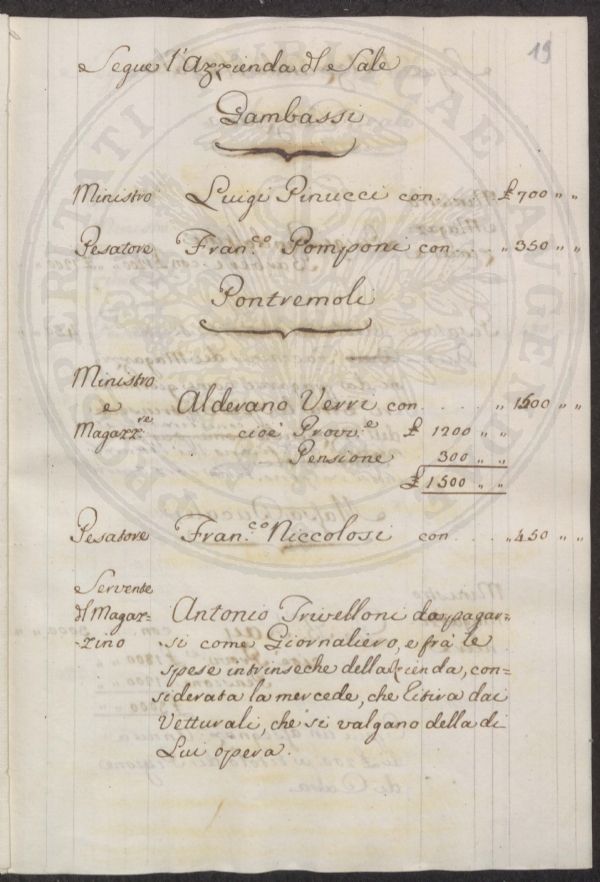 19
Segue l'Azzienda dl Sale
Gambassi
Ministro Luigi Pinucci con . . . . £ 700 „ „
Pesatore Fran.co Pomponi con . . . . „ 350 „ „
Pontremoli
Ministro
e Alderano Verri con . . . . . „ 1500 „ „
Magazz.re cioè Provv.e £ 1200 „ „
Pensione 300 „ „
£ 1500 „ „
Pesatore Fran.co Niccolosi con . . . . „ 450 „ „
Servente
dl Magaz= Antonio Trivelloni da pagar=
=zino si come Giornaliero, e frà le
spese intrinseche della zienda, con=
siderata la mercede, che litira dai
Vetturali, che si valgano della di
Lui opera.
PROSPERITATI PUBLICAE AUGENDAE